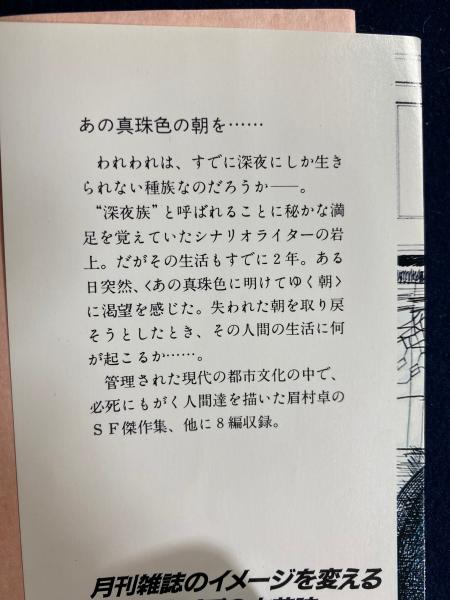 あの真珠色の朝を……
われわれは、すでに深夜にしか生き
られない種族なのだろうか――。
“深夜族”と呼ばれることに秘かな満
足を覚えていたシナリオライターの岩
上。だがその生活もすでに2年。ある
日突然、〈あの真珠色に明けてゆく朝〉
に渇望を感じた。失われた朝を取り戻
そうとしたとき、その人間の生活に何
が起こるか……。
管理された現代の都市文化の中で、
必死にもがく人間達を描いた眉村卓の
SF傑作集、他に8編収録。
月刊雑誌のイメージを変える